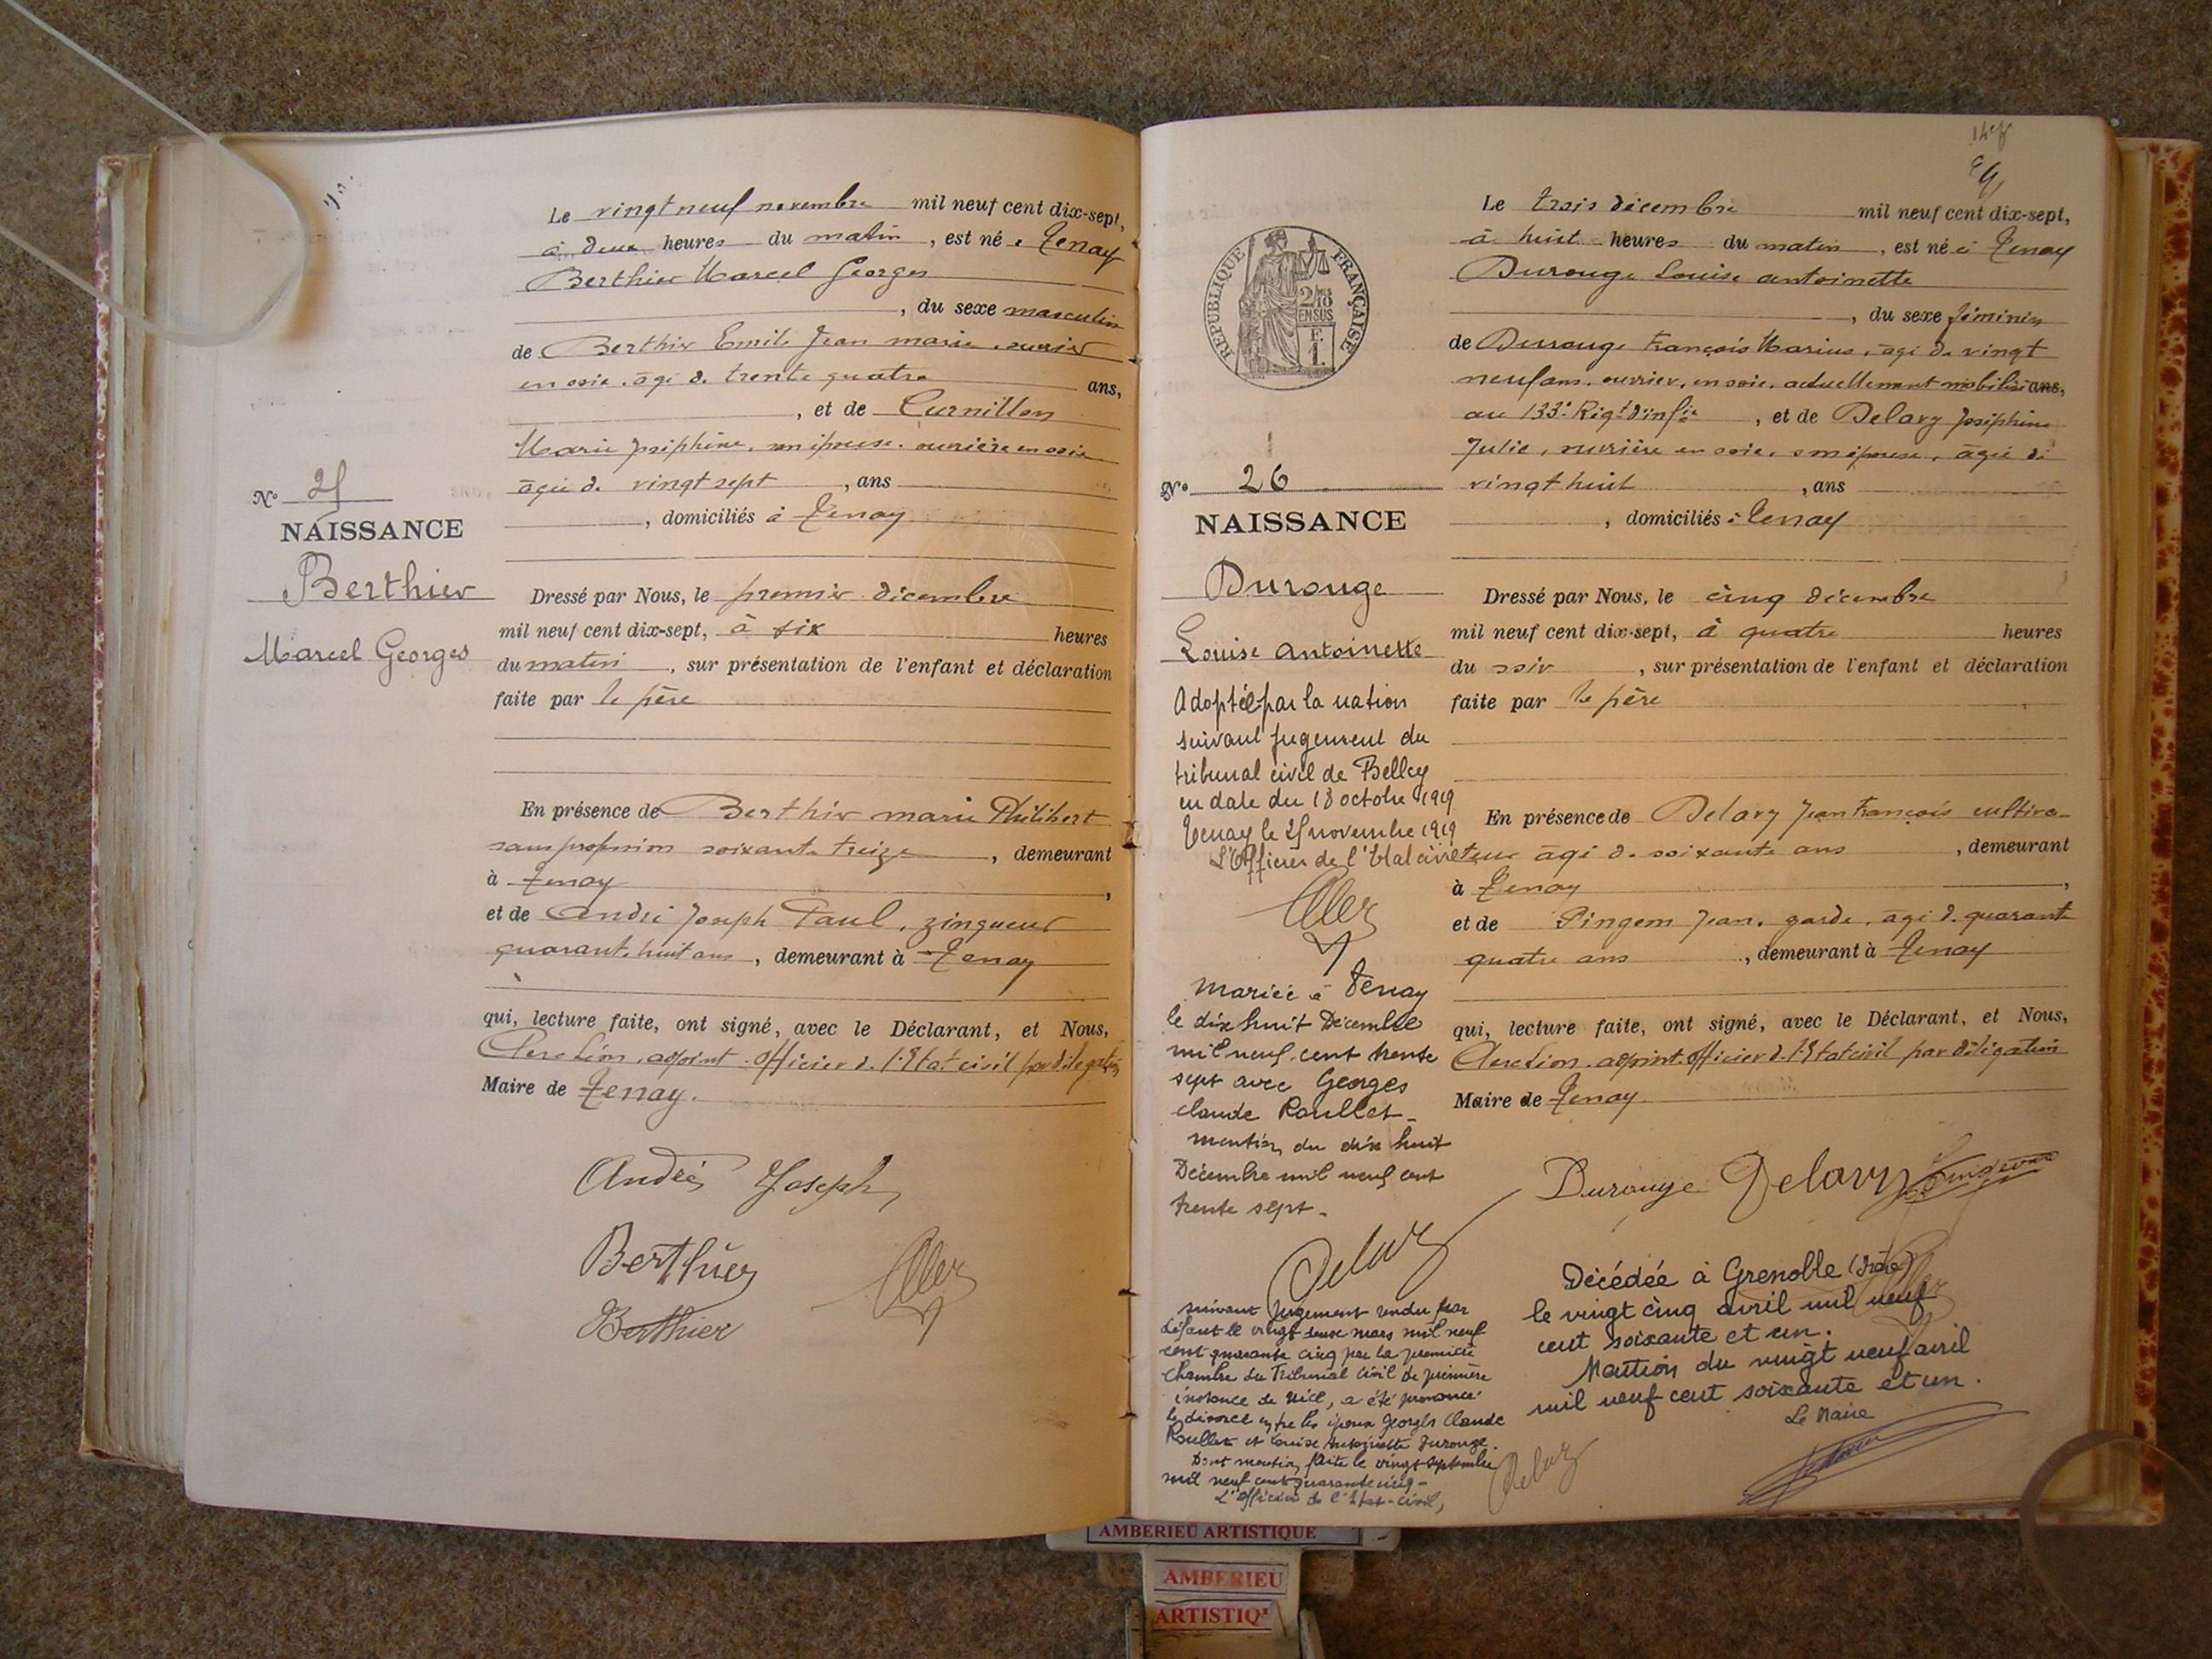 Le vingt neuf novembre mil neuf cent dix-sept,
à deux heures du matin, est né à Tenay
Berthier Marcel Georges
, du sexe masculin
de Berthier Emile Jean marie, ouvrier
en soie, âgé de trente quatre ans,
, et de Curnillon
Marie Joséphine, son épouse, ouvrière en soie
âgée de vingt sept, ans
, domiciliés à Tenay
N° 25
NAISSANCE
Berthier
Marcel Georges
Dressé par Nous, le premier décembre
mil neuf cent dix-sept, à six heures
du matin, sur présentation de l'enfant et déclaration
faite par le père
En présence de Berthier marie Philibert
sans profession soixante treize, demeurant
à Tenay,
et de André Joseph Paul, zingueur
quarante huit ans, demeurant à Tenay
qui, lecture faite, ont signé, avec le Déclarant, et Nous,
adjoint officier de l'Etat civil par délégation
Maire de Tenay.
André Joseph
Berthier
Berthier
Le trois décembre mil neuf cent dix-sept,
à huit heures du matin, est né à Tenay
Durouge Louise antoinette
, du sexe féminin
de Durouge François Marius, âgé de vingt
neuf ans, ouvrier, en soie, actuellement mobilisé ans,
au 133e Rigt d'infie, et de Delavy Joséphine
Julie, ouvrière en soie, son épouse, âgée de
vingt huit, ans
, domiciliés à Tenay
RÉPUBLIQUE FRANÇAISE
2/10
EN SUS
F.
1.
N° 26
NAISSANCE
Durouge
Louise Antoinette
Adoptée par la nation
suivant jugement du
tribunal civil de Belley
en date du 18 octobre 1919
Tenay le 25 novembre 1919
L'Officier de l'Etat civil
mariée à Tenay
le dix huit Décembre
mil neuf cent trente
sept avec Georges
Claude Roullet_
mention du dix huit
Décembre mil neuf cent
trente sept_
suivant jugement rendu par
défaut le vingt deux mars mil neuf
cent quarante cinq par la première
chambre du Tribunal civil de première
instance de Nice, a été prononcé
le divorce entre les époux Georges Claude
Roullet et Louise Antoinette Durouge.
Dont mention faite le vingt septembre
mil neuf cent quarante cinq_
L'officier de l'Etat-civil,
Dressé par Nous, le cinq décembre
mil neuf cent dix-sept, à quatre heures
du soir, sur présentation de l'enfant et déclaration
faite par le père
En présence de Delavy Jean François cultiva-
teur âgé de soixante ans, demeurant
à Tenay,
et de Pingeon Jean, garde, âgé de quarante
quatre ans, demeurant à Tenay
qui, lecture faite, ont signé, avec le Déclarant, et Nous,
adjoint officier de l'Etat civil par délégation
Maire de Tenay
Durouge Delavy Pingeon
Décédée à Grenoble (Isère)
le vingt cinq avril mil neuf
cent soixante et un.
Mention du vingt neuf avril
mil neuf cent soixante et un.
Le Maire
AMBERIEU ARTISTIQUE
AMBERIEU
ARTISTIQ